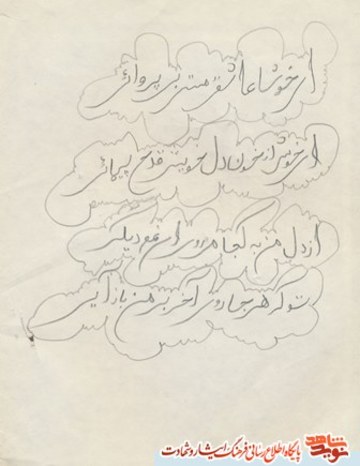 ای خوشا عاشق مستی بی پروائی
ای خوش از خون دل خویش قدح پیمائی
از دل من به کجا میروی ای غم دیگر
تو که هر جا روی آخر بر من باز آیی
نوید شاهد
پایگاه اطلاع رسانی فرهنگ ایثار و شهادت